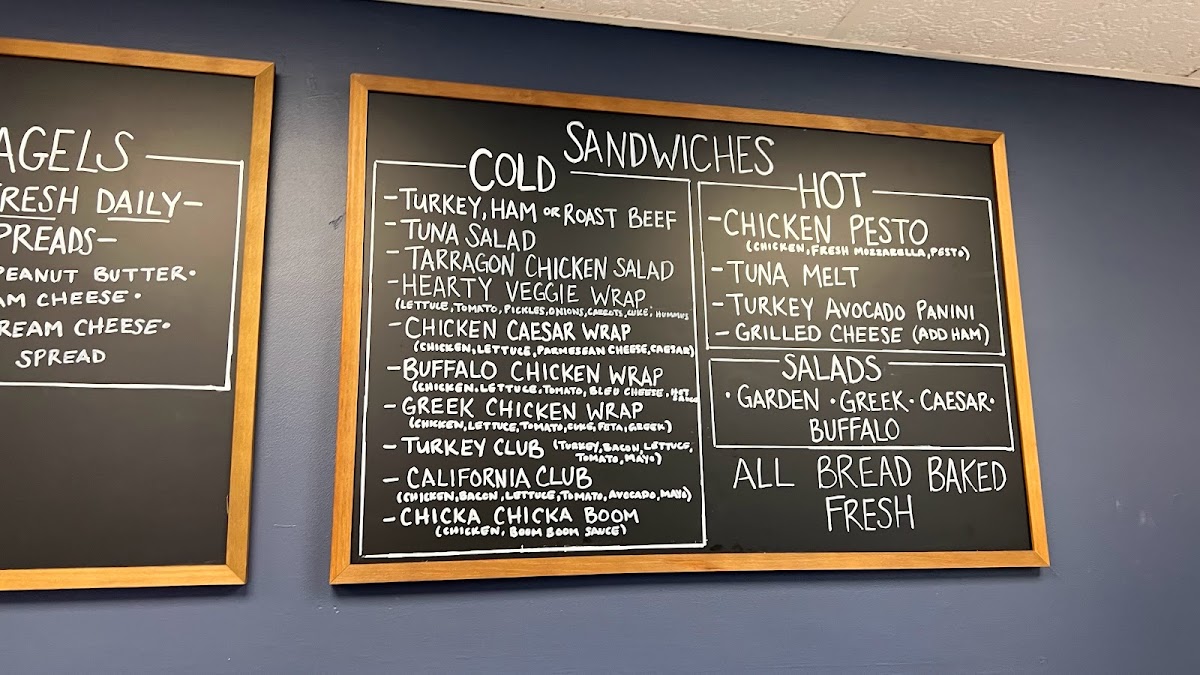 AGELS
RESH DAILY-
PREADS-
PEANUT BUTTER·
AM CHEESE·
REAM CHEESE·
SPREAD
SANDWICHES
COLD
-TURKEY, HAM OR ROAST BEEF
-TUNA SALAD
-TARRAGON CHICKEN SALAD
-HEARTY VEGGIE WRAP
(LETTUCE, TOMATO, PICKLES, ONIONS, CARROTS, CUKE, HUMMUS
-CHICKEN CAESAR WRAP
(CHICKEN, LETTUCE, PARMESEAN CHEESE, CAESAR)
-BUFFALO CHICKEN WRAP
(CHICKEN, LETTUCE, TOMATO, BLEU CHEESE, HOT
SAUCE
-GREEK CHICKEN WRAP
(CHICKEN, LETTUCE, TOMATO, CUKE, FETA, GREEK)
-TURKEY CLUB (TURKEY, BACON, LETTUCE,
TOMATO, MAYO)
-CALIFORNIA CLUB
(CHICKEN, BACON, LETTUCE, TOMATO, AVOCADO, MAYO)
-CHICKA CHICKA BOOM
(CHICKEN, BOOM BOOM SAUCE)
HOT
-CHICKEN PESTO
(CHICKEN, FRESH MOZZARELLA, PESTO)
-TUNA MELT
-TURKEY AVOCADO PANINI
-GRILLED CHEESE (ADD HAM)
SALADS
·GARDEN ·GREEK· CAESAR·
BUFFALO
ALL BREAD BAKED
FRESH